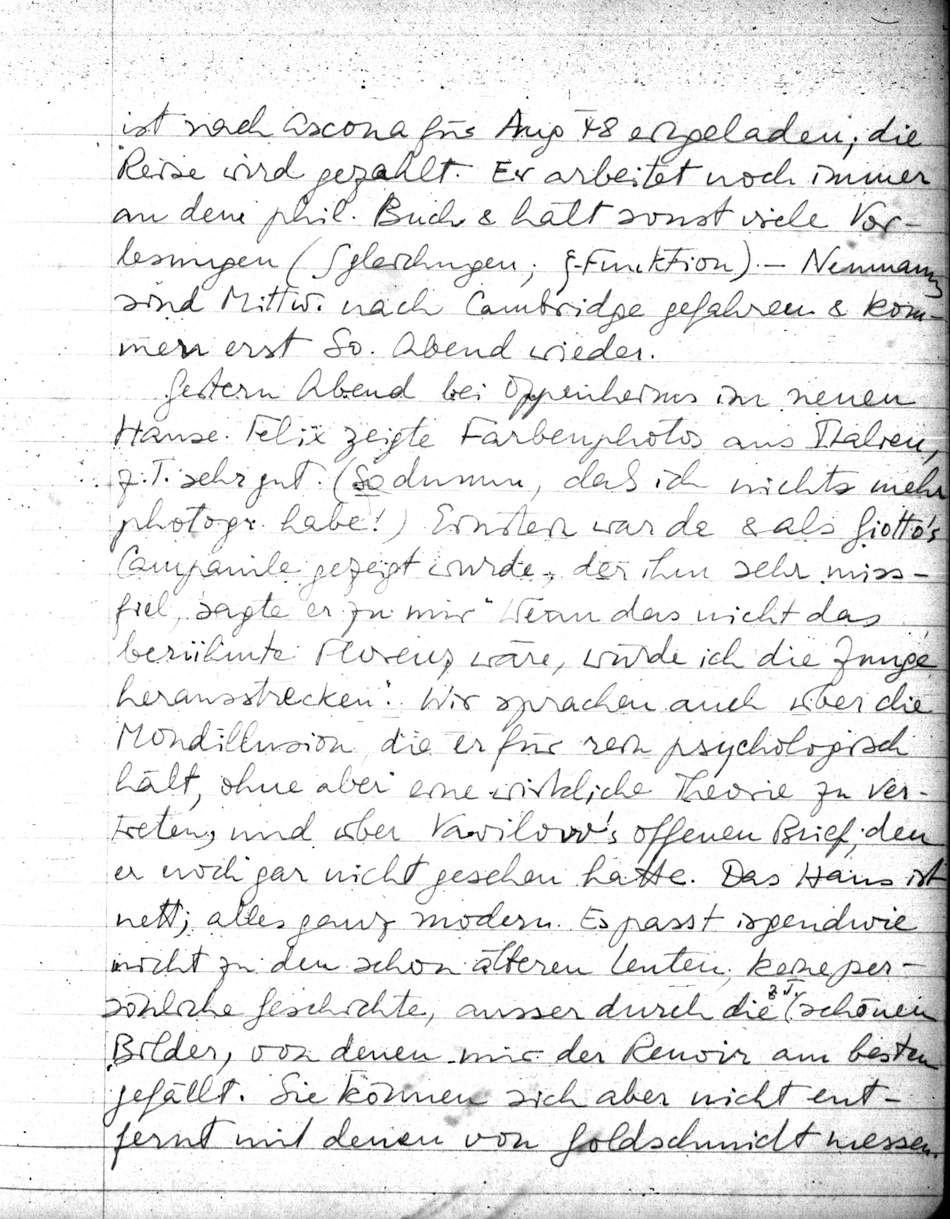 ist nach Ascona für Aug 48 eingeladen; die
Reise wird gezahlt. Er arbeitet noch immer
an dem phil. Buch & hält sonst viele Vor-
lesungen (∫gleichungen; ξ-Funktion). — Neumanns
sind Mittw. nach Cambridge gefahren & kom-
men erst So. Abend wieder.
Gestern Abend bei Oppenheims im neuen
Hause. Felix zeigte Farbenphotos aus Italien,
z.T. sehr gut. (So dumm, daß ich nichts mehr
photogr. habe!) Einstein war da & als Giotto's
Campanile gezeigt wurde, der ihm sehr miss-
fiel, sagte er zu mir "Wenn das nicht das
berühmte Florenz wäre, würde ich die Zunge
herausstrecken". Wir sprachen auch über die
Mondillusion, die er für rein psychologisch
hält, ohne aber eine wirkliche Theorie zu ver-
treten, und über Vavilow's offenen Brief, den
er noch gar nicht gesehen hatte. Das Haus ist
nett; alles ganz modern. Es passt irgendwie
nicht zu den schon älteren Leuten, keine per-
sönliche Geschichte, ausser durch die z.T. schönen
Bilder, von denen mir der Renoir am besten
gefällt. Sie können sich aber nicht ent-
fernt mit denen von Goldschmidt messen.